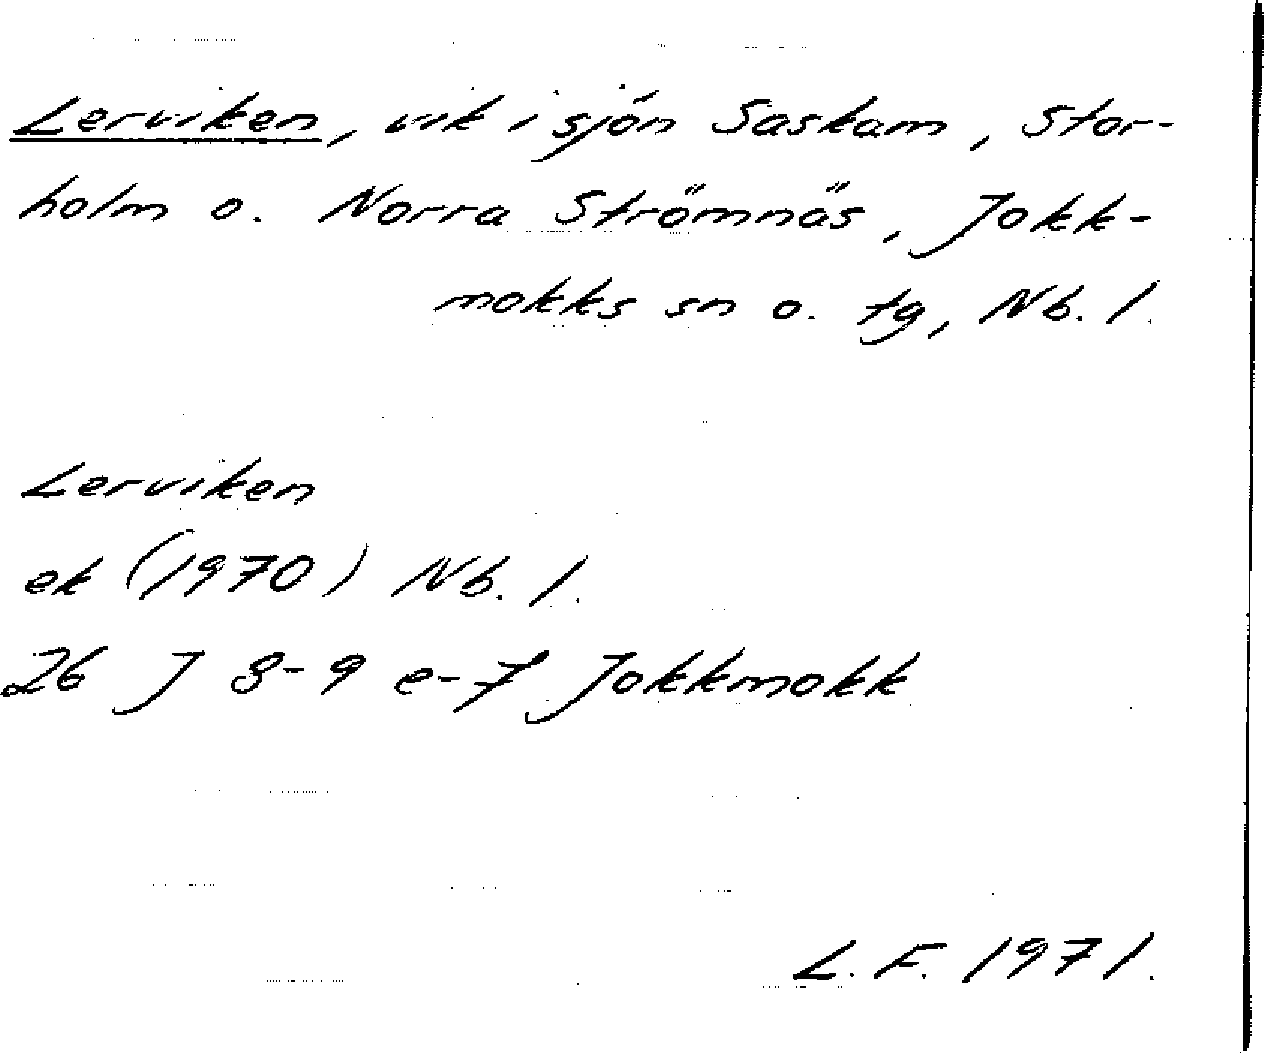 Lerviken, vik i sjön Saskam, Stor-
holm o. Norra Strömnäs, Jokk-
mokks sn o. tg, Nb. l.
Lerviken
ek (1970) Nb. l.
26 J 8-9 e-f Jokkmokk
L. F. 1971.